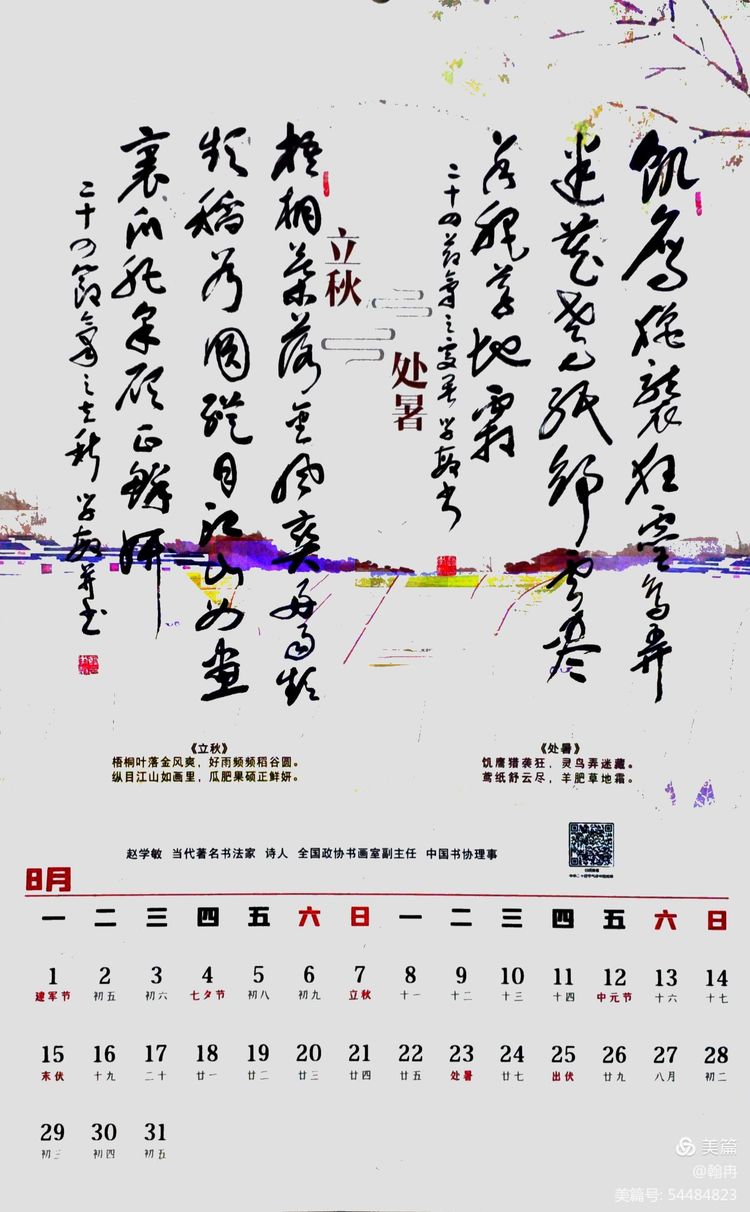 飢鷹獵襲狂靈鳥弄
迷藏鳶紙舒雲盡
羊肥草地霜
二十四節氣之處暑 学敏书
处暑
立秋
梧桐葉落金風爽好雨频
频稻谷圓縱目江山如畫
裏瓜肥果碩正鲜妍
二十四節氣之立秋 学敏并书
《立秋》
梧桐叶落金风爽，好雨频频稻谷圆。
纵目江山如画里，瓜肥果硕正鲜妍。
《处暑》
饥鹰猎袭狂，灵鸟弄迷藏。
鸢纸舒云尽，羊肥草地霜。
赵学敏 当代著名书法家 诗人 全国政协书画室副主任 中国书协理事
8月
一 二 三 四 五 六 日 一 二 三 四 五 六 日
1 2 3 4 5 6 7 8 9 10 11 12 13 14
建军节 初五 初六 七夕节 初八 初九 立秋 十一 十二 十三 十四 中元节 十六 十七
15 16 17 18 19 20 21 22 23 24 25 26 27 28
末伏 十九 二十 廿一 廿二 廿三 廿四 廿五 处暑 廿七 出伏 廿九 八月 初二
29 30 31
初三 初四 初五
美篇
@翰冉
美篇号: 54484823